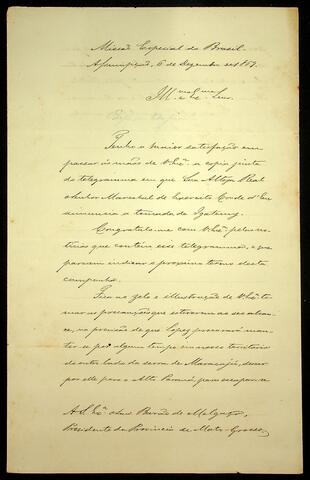 Missão Especial do Brasil
Assumpção, 6 de Dezembro de 1869.
Illmo e Exmo Senr.
Tenho a maior satisfação em
passar ás mãos de V. Exa a copia junta
do telegramma em que Sua Alteza Real
o Senhor Marechal de Exercito Conde d'Eu
annuncia a tomada de Igatemy.
Congratulo-me com V. Exa pelas no-
ticias que contém esse telegramma, e que
parecem indicar o proximo termo desta
campanha.
Fica ao zelo e illustração de V. Exa to-
mar as precauções que estiverem ao seu alcan-
ce, na previsão de que Lopez procurará man-
ter-se por algum tempo no nosso territorio
do outro lado da serra de Maracajú,
por elle para o Alto Paraná, para escapar-se
A S. Exa o Snr Barão de Melgaço,
Presidente da Provincia de Mato-Grosso